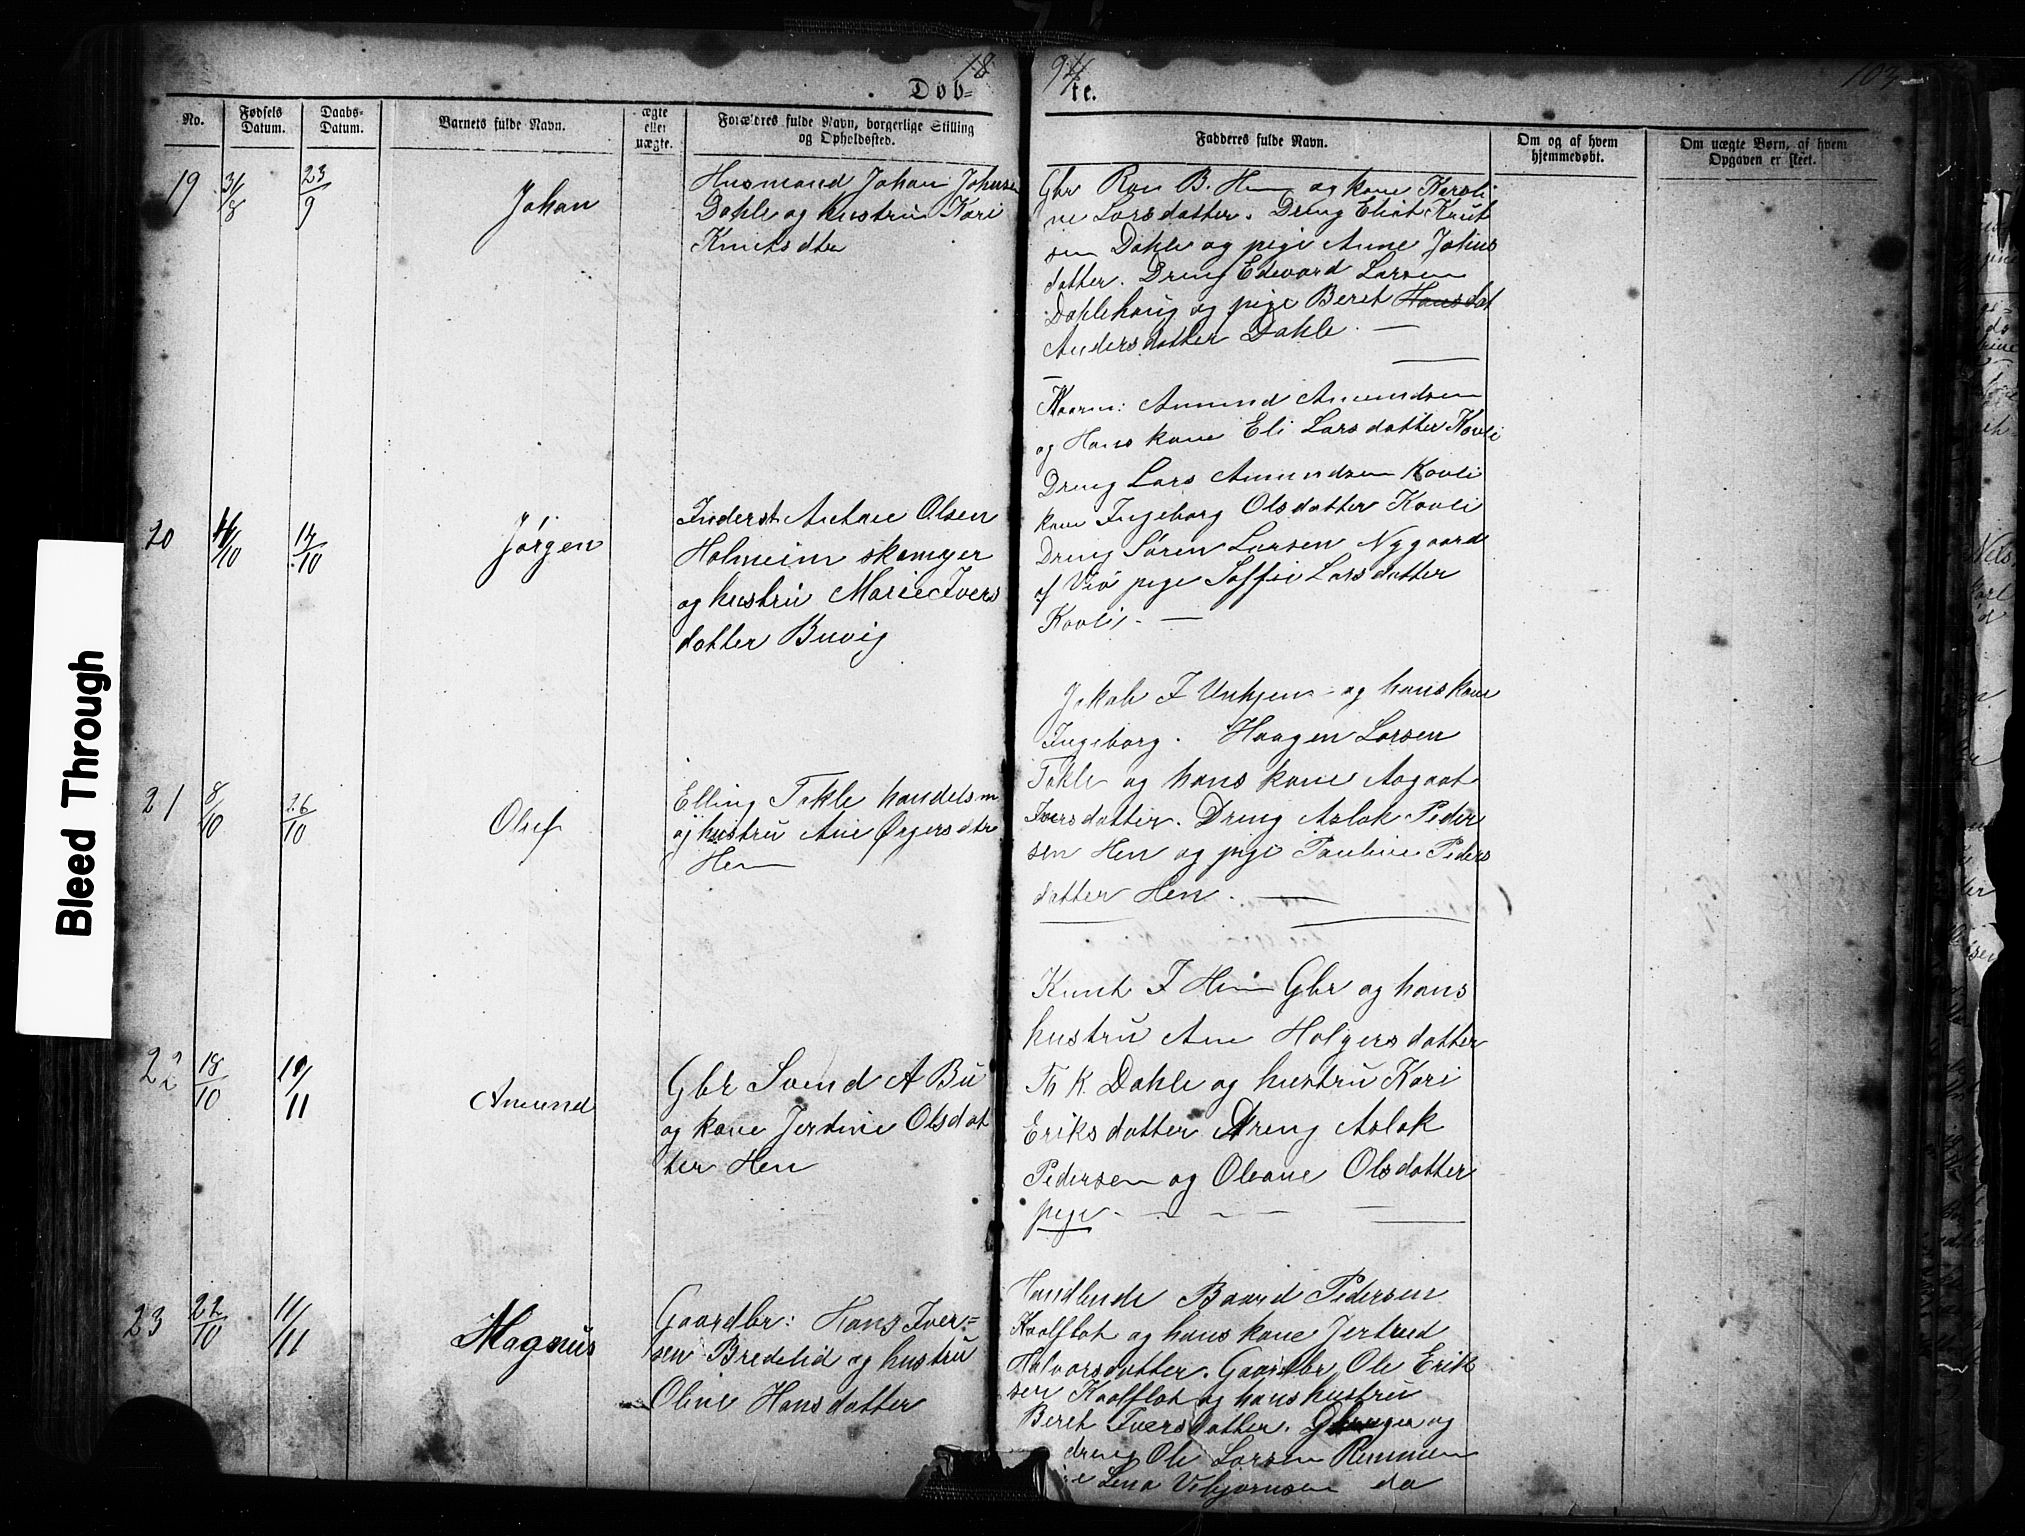 18 94
103
Døb- te.
No.
Fødsels Datum.
Daabs- Datum.
Barnets fulde Navn.
ægte eller uægte.
Forældres fulde Navn, borgerlige Stilling og Opholdssted.
Fadderes fulde Navn.
Om og af hvem hjemmedøbt.
Om uægte Børn, af hvem Opgaven er skeet.
19 31/8 23/9 Johan
Husmand Johan Johnsen
Dahle og hustru Kari
Knutsdtr
Gbr B. Hen og kone Karoli
ne Larsdatter. Dreng Eliot Knut
sen Dahle og pige Anne Johns
datter. Dreng Edvard Larsen
Dahlehaug og pige Beret Hansdat
Andersdatter Dahle. —
20 4/10 14/10 Jørgen
Inderst Antone Olsen
Holmeim skomger
og hustru Marie Ivers
datter Buvig
Kaarm: Amund Amundsen
og Hans kone Eli Larsdatter Kavli
Dreng Lars Amundsen Kavli
kone Ingeborg Olsdatter Kavli
Dreng Søren Larsen Nygaard
af Veø pige Soffie Larsdatter
Kavli. —
21 8/10 26/10 Oluf
Elling Tokle handelsm
og hustru Ane Ørgersdtr
Hen
Jakob I Unhjem og hans kone
Ingeborg. Haagen Larsen
Tokle og hans kone Aagaat
Iversdatter. Dreng Aslak Peder
sen Hen og pige Pauline Peders
datter Hen. —
22 18/10 10/11 Amund
Gbr Svend A Bu
og kone Jertine Olsdat
ter Hen
Knut I Hen Gbr og hans
hustru Ane Holgersdatter
Th K. Dahle og hustru Kari
Eriksdatter Dreng Aslak
Pedersen og Oleane Olsdatter
pige
23 22/10 11/11 Magnus
Gaardbr: Hans Iver=
sen Bredelid og hustru
Oline Hansdatter
Handlende Baard Pedersen
Kaalflot og hans kone Jertrud
Halvorsdatter. Gaardbr Ole Erik
sen Kaalflot og hans hustru
Beret Iversdatter. og
dreng Ole Larsen Remmem
Lena Vebjørnsen do
Bleed Through